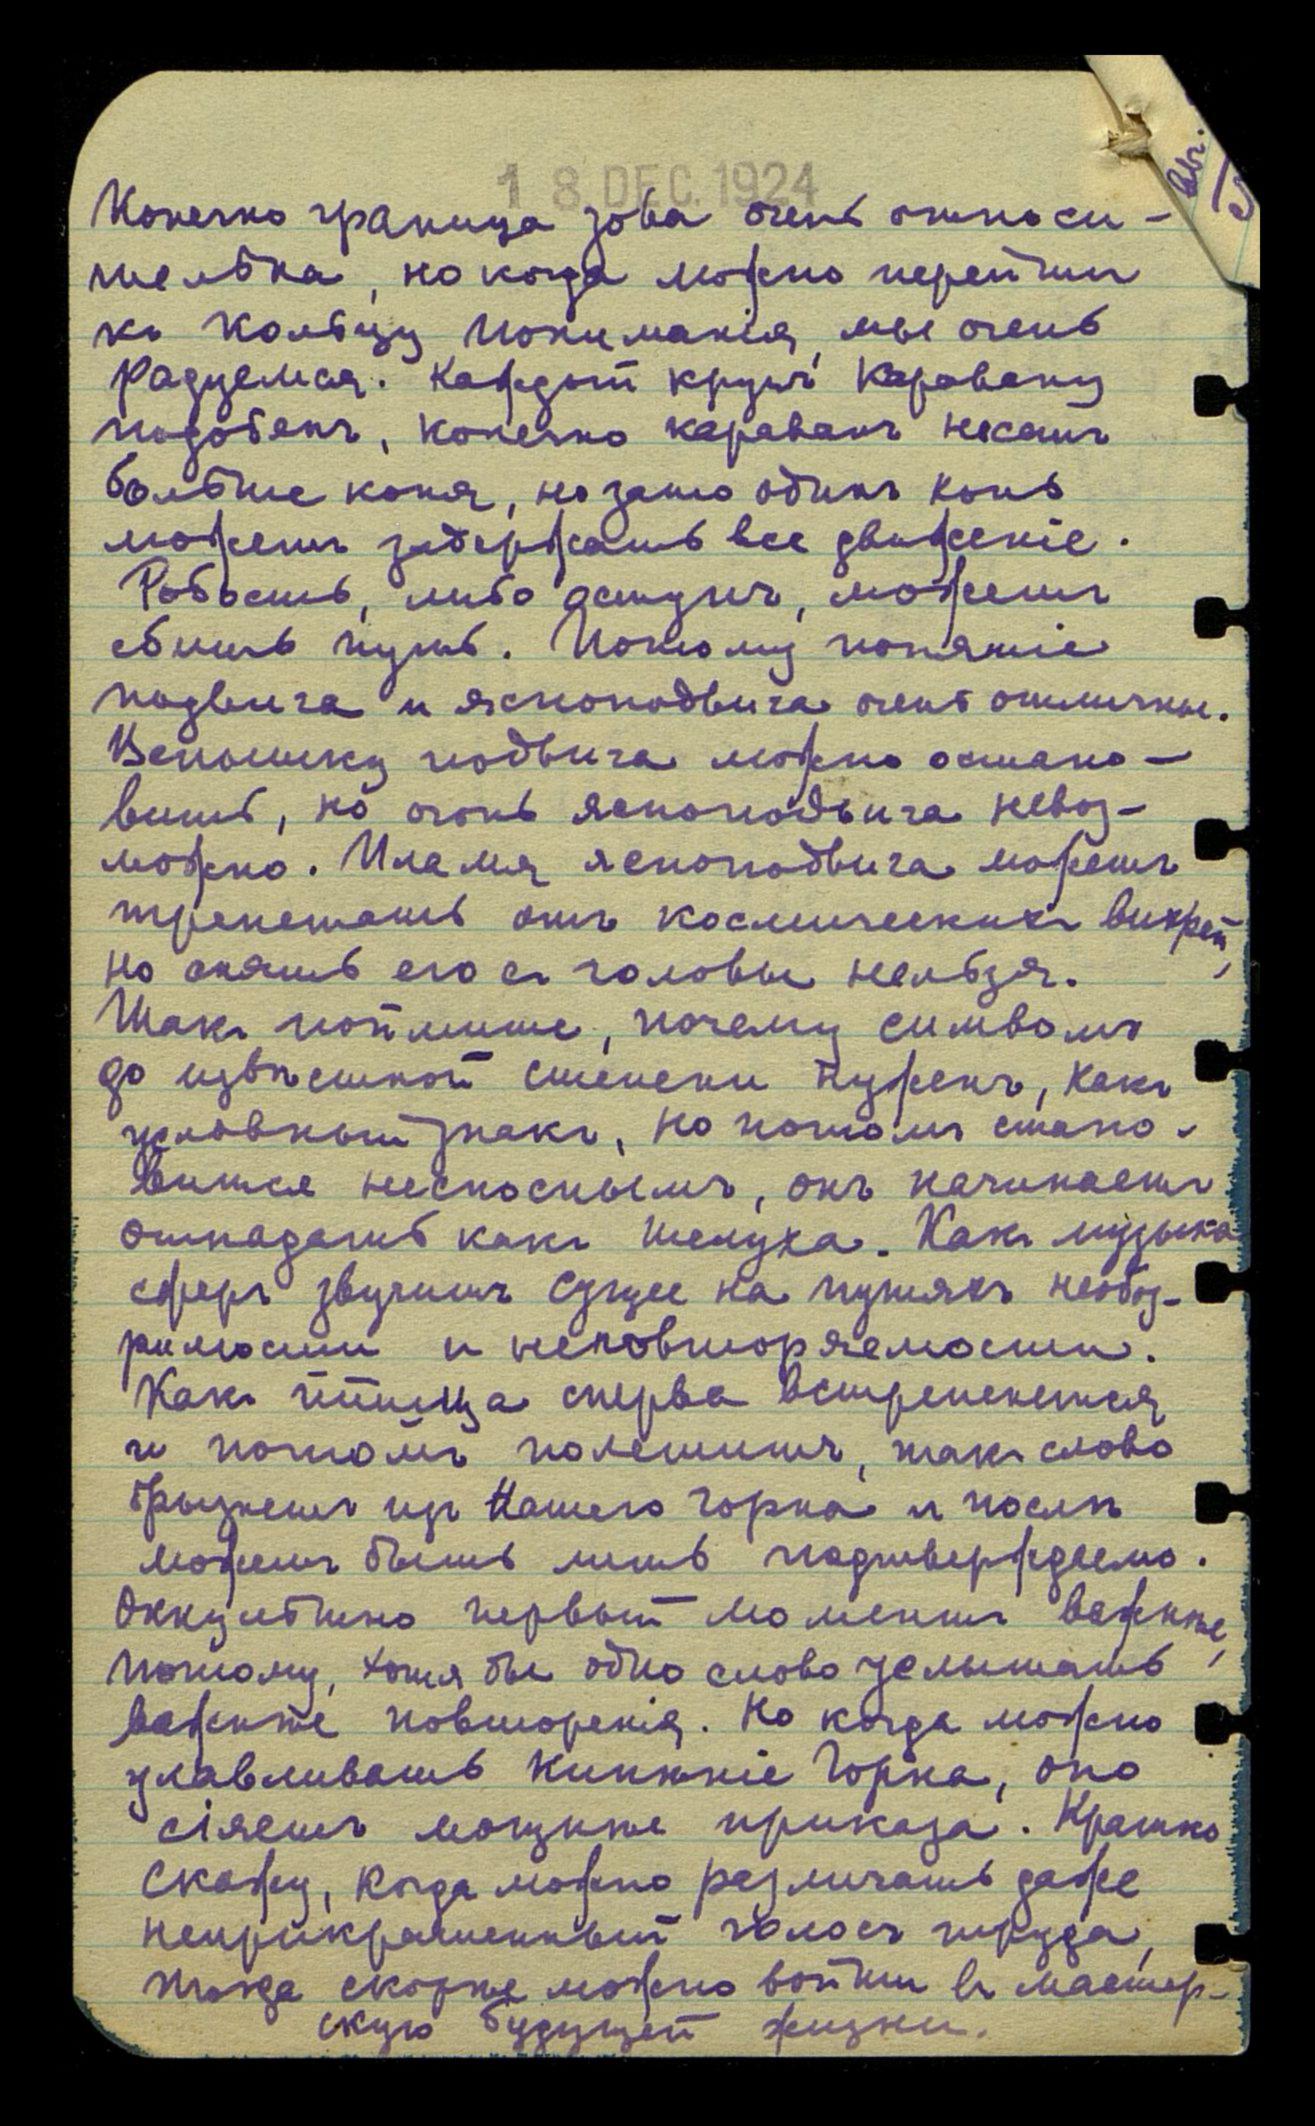 18 DEC. 1924
Конечно граница зова очень относи-
тельна, но когда можно перейти
къ Кольцу Пониманія, мы очень
радуемся. Каждый кругъ Каравану
подобенъ, конечно караванъ несетъ
больше коня, но зато одинъ конь
можетъ задержать все движеніе.
Робость, либо оступъ, можетъ
сбить путь. Потому понятіе
подвига и ясноподвига очень отличны.
Вспышку подвига можно остано-
вить, но огонь ясноподвига невоз-
можно. Пламя ясноподвига можетъ
трепетать отъ космическихъ вихрей,
но снять его съ головы нельзя.
Такъ поймите, почему символъ
до извѣстной степени нуженъ, какъ
условный знакъ, но потомъ стано-
вится несноснымъ, онъ начинаетъ
отпадать какъ шелуха. Какъ музыка
сферъ звучитъ Сущее на путяхъ необоз-
римости и неповторяемости.
Какъ птица сперва встрепенется
и потомъ полетитъ, такъ слово
брызнетъ изъ Нашего Горна и послѣ
можетъ быть лишь подтверждаемо.
Оккультно первый моментъ важнѣе,
потому, хотя бы одно слово услышать
важнѣе повторенія. Но когда можно
улавливать кипѣніе Горна, оно
сіяетъ мощнѣе приказа. Кратко
скажу, когда можно различать даже
неприкрашенный голосъ труда,
тогда скорѣе можно войти въ мастер-
скую будущей жизни.